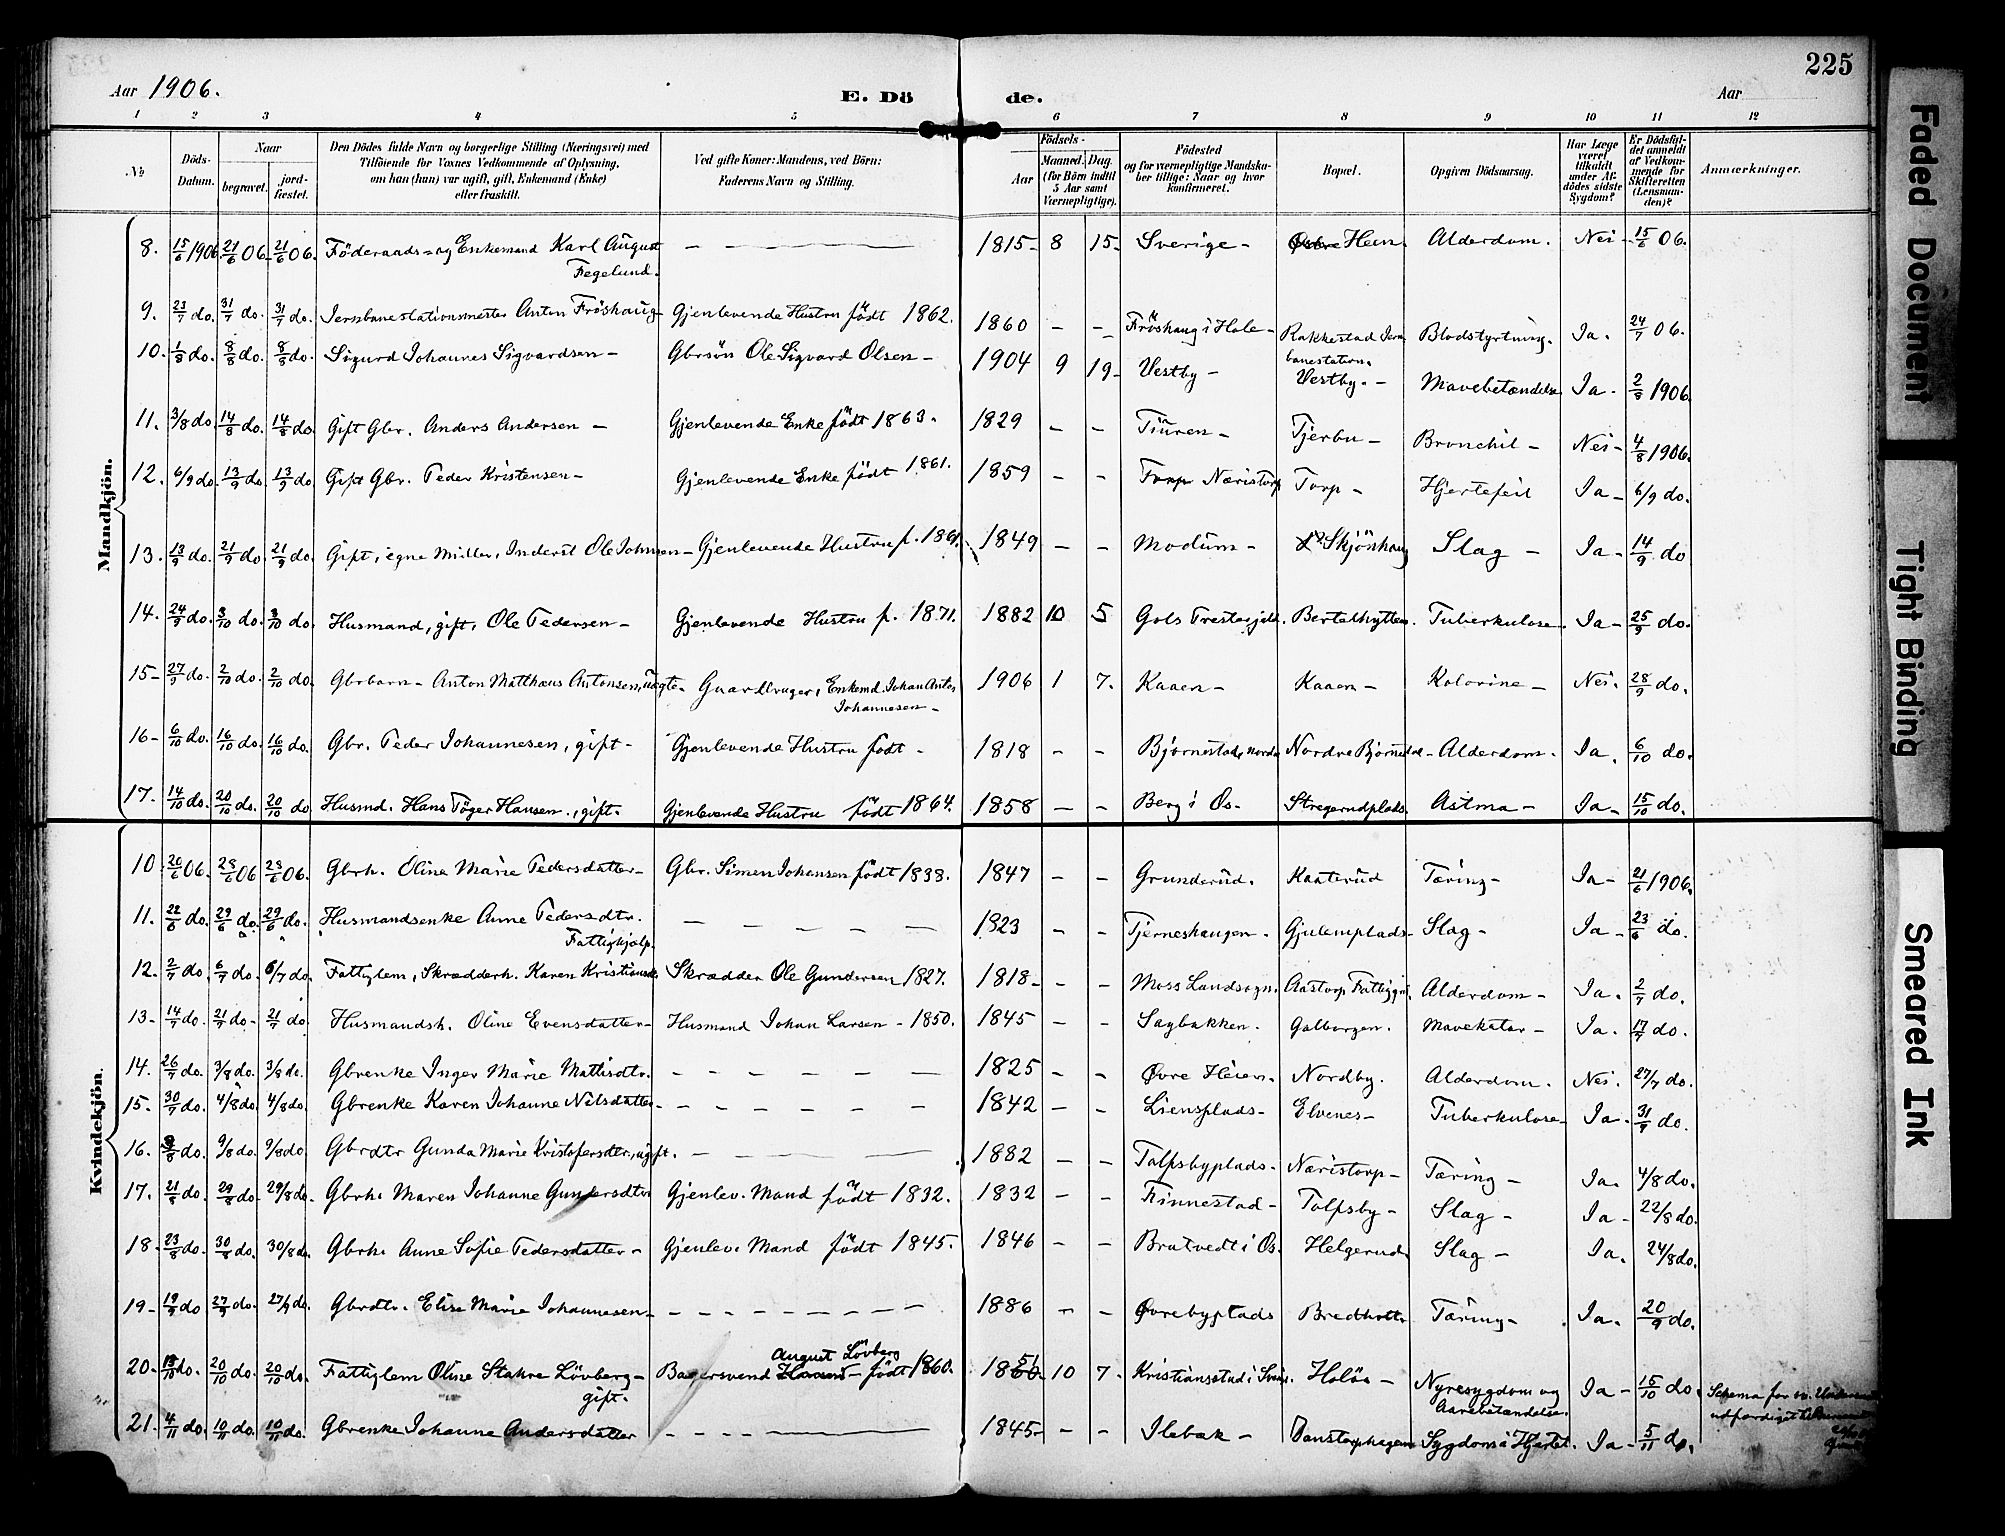 225
Aar 1906.
E. Dö de.
Aar
1 2 3 4 5 6 7 8 9 10 11 12
No
Döds-Datum.
Naar
begravet.
jord-fæstet.
Den Dödes fulde Navn og borgerlige Stilling (Næringsvei) med Tilföiende for Voxnes Vedkommende af Oplysning, om han (hun) var ugift, gift, Enkemand (Enke) eller fraskilt.
Ved gifte Koner: Mandens, ved Börn: Faderens Navn og Stilling.
Födsels-
Aar
Maaned. Dag. (for Börn indtil 5 Aar samt Værnepligtige).
Födested og for værnepligtige Mandskaber tillige: Naar og hvor konfirmeret.
Bopæl.
Opgiven Dödsaarsag.
Har Læge været tilkaldt under Afdödes sidste Sygdom?
Er Dödsfaldet anmeldt af Vedkommende for Skifteretten (Lensmanden)?
Anmærkninger.
Mandkjön.
8. 15/6 1906. 21/6 06. 21/6 06. Föderaads- og Enkemand Karl August Fegelund. 1815- 8 15- Sverige- Heen. Alderdom. Nei- 15/6 06.
9. 23/7 do. 31/7 do. 31/7 do. Jernbanestationsmester Anton Fröshaug- Gjenlevende Hustru födt 1862. 1860 - - Fröshaug i Hole- Rakkestad Jernbanestation. Blodstyrtning. Ja. 24/7 06.
10. 1/8 do. 8/8 do. 8/8 do. Sigurd Johannes Sigvardsen- Gbrsön Ole Sigvard Olsen- 1904 9 19- Vestby- Vestby.- Mavebetændelse Ja- 2/8 1906.
11. 3/8 do. 14/8 do. 14/8 do. Gift Gbr. Anders Andersen- Gjenlevende Enke födt 1863. 1829 - - Tiuren- Tjerbu- Bronchit- Nei- 4/8 1906.
12. 6/9 do. 13/9 do. 13/9 do Gift Gbr. Peder Kristensen- Gjenlevende Enke födt 1861. 1859 - - Næristorp Torp- Hjertefeil Ja- 6/9 do.
13. 13/9 do. 21/9 do 21/9 do. Gift, egne Midler, Inderst Ole Johnsen- Gjenlevende Hustru f. 1849 - - Modum- Skjönhaug Slag- Ja- 14/9 do
14. 24/9 do. 3/10 do. 3/10 do. Husmand, gift, Ole Pedersen- Gjenlevende Hustru f. 1871. 1882 10 5 Gols Prestegjeld. Bertelhytten. Tuberkulose. Ja- 25/9 do.
15- 27/9 do. 2/10 do. 2/10 do. Gbrbarn- Anton Matthæus Antonsen, uægte- Gaardbruger, Enkemd. Johan Anton Johannesen- 1906 1 7. Kaaen- Kaaen- Kolorine- Nei. 28/9 do.
16- 6/10 do. 16/10 do. 16/10 do. Gbr. Peder Johannesen, gift- Gjenlevende Hustru födt- 1818 - - Björnestad, nordre Nordre Björnestad- Alderdom. Ja. 6/10 do.
17. 14/10 do. 20/10 do. 20/10 do Husmd. Hans Töger Hansen., gift. Gjenlevende Hustru födt 1864. 1858 - - Berg i Øs- Stregerudplads. Astma- Ja- 15/10 do.
Kvindekjön.
10 20/6 06. 28/6 06 28/6 06. Gbrh. Oline Marie Pedersdatter- Gbr. Simen Johansen födt 1838. 1847 - - Grunderud. Kaaterud Tæring- Ja- 21/6 1906.
11. 22/6 do. 29/6 do. 29/6 do. Husmandsenke Anne Pedersdtr. Fattighjælp. 1823 - - Tjerneshaugen. Gjulemplads- Slag- Ja- 23/6 do.
12. 2/7 do. 6/7 do. 6/7 do. Fattiglem, Skrædderh. Karen Kristiansd. Skrædder Ole Gundersen 1827. 1818- - - Moss Landsogn. Aastorp Fattiggd. Alderdom- Ja. 2/7 do.
13- 14/7 do. 21/7 do- 21/7 do. Husmandsh. Oline Evensdatter- Husmand Johan Larsen- 1850. 1845 - - Sagbakken. Galborgen. Mavekatar- Ja. 17/7 do.
14. 26/7 do. 3/8 do. 3/8 do. Gbrenke Inger Marie Mattisdtr. 1825 - - Øvre Heien. Nordby. Alderdom. Nei. 27/7 do.
15. 30/7 do. 4/8 do. 4/8 do. Gbrenke Karen Johanne Nilsdatter- 1842 - - Liensplads- Elvenes- Tuberkulose- Ja. 31/7 do.
16. 3/8 do. 9/8 do. 9/8 do. Gbrdtr Gunda Marie Kristofersdtr, ugift. 1882 - - Tolfsbyplads- Næristorp- Tæring- Ja. 4/8 do.
17. 21/8 do. 29/8 do. 29/8 do. Gbrh. Maren Johanne Gundersdtr Gjenlev. Mand födt 1832. 1832 - - Finnestad- Tolfsby- Slag- Ja- 22/8 do.
18- 23/8 do. 30/8 do. 30/8 do. Gbrh. Anne Sofie Pedersdatter- Gjenlev. Mand födt 1845. 1846 - - Bratvedt i Øs. Helgerud Slag- Ja. 24/8 do.
19- 19/9 do 27/9 do. 27/9 do. Gbrdtr. Elise Marie Johannesen- 1886 - - Øvrebyplads Bredholt Tæring- Ja. 20/9 do.
20- do. 20/10 do. 20/10 do. Fattiglem Oline Stakre Lövberg- gift. Bagersvend August Lövberg födt 1860. 1851 10 7. Kristiansstad i Sverig. Holös- Nyresygdom og Aarebetændelse. Ja- 15/10 do.
21. 4/11 do. 10/11 do. 10/11 do. Gbrenke Johanne Andersdatter 1845- - - Ilebæk- Danstorphagen Sygdom i Hjertet. Ja- 5/11 do.
Schema for
Faded Document
Tight Binding
Smeared Ink